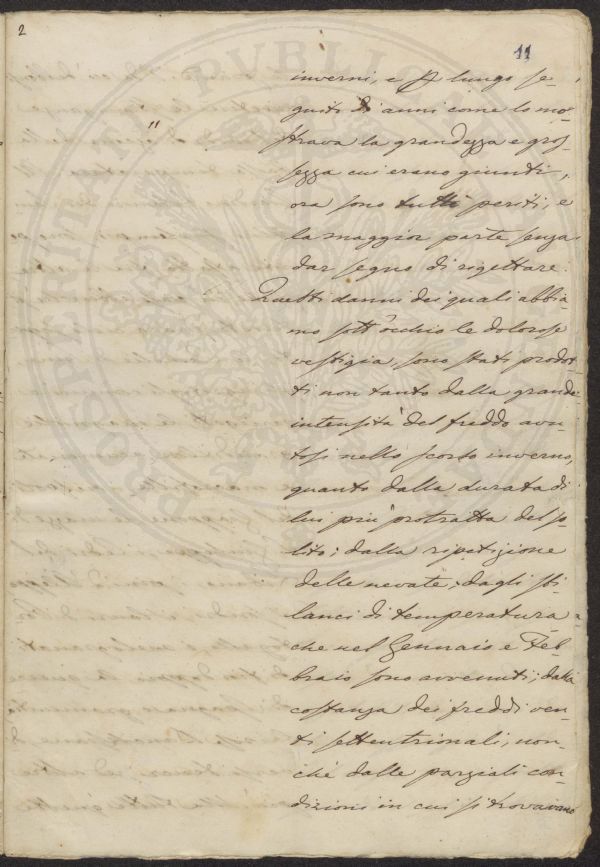 2
11
inverni, e p lungo se-
guito di anni come lo mo-
strava la grandezza e gros-
sezza cui erano giunti,
ora sono tutti periti, e
la maggior parte senza
dar segno di rigettare.
Questi danni dei quali abbia-
mo sott'occhio le dolorose
vestigia, sono stati prodot-
ti non tanto dalla grande
intensità del freddo avu-
tosi nello scorso inverno,
quanto dalla durata di
lui più protratta del so-
lito; dalla ripetizione
delle nevate; dagli sbi-
lanci di temperatura
che nel Gennaio e Feb-
braio sono avvenuti; dalla
costanza dei freddi ven-
ti settentrionali, non-
chè dalle parziali con-
dizioni in cui si trovavano
PROSPERITATI PUBLICAE